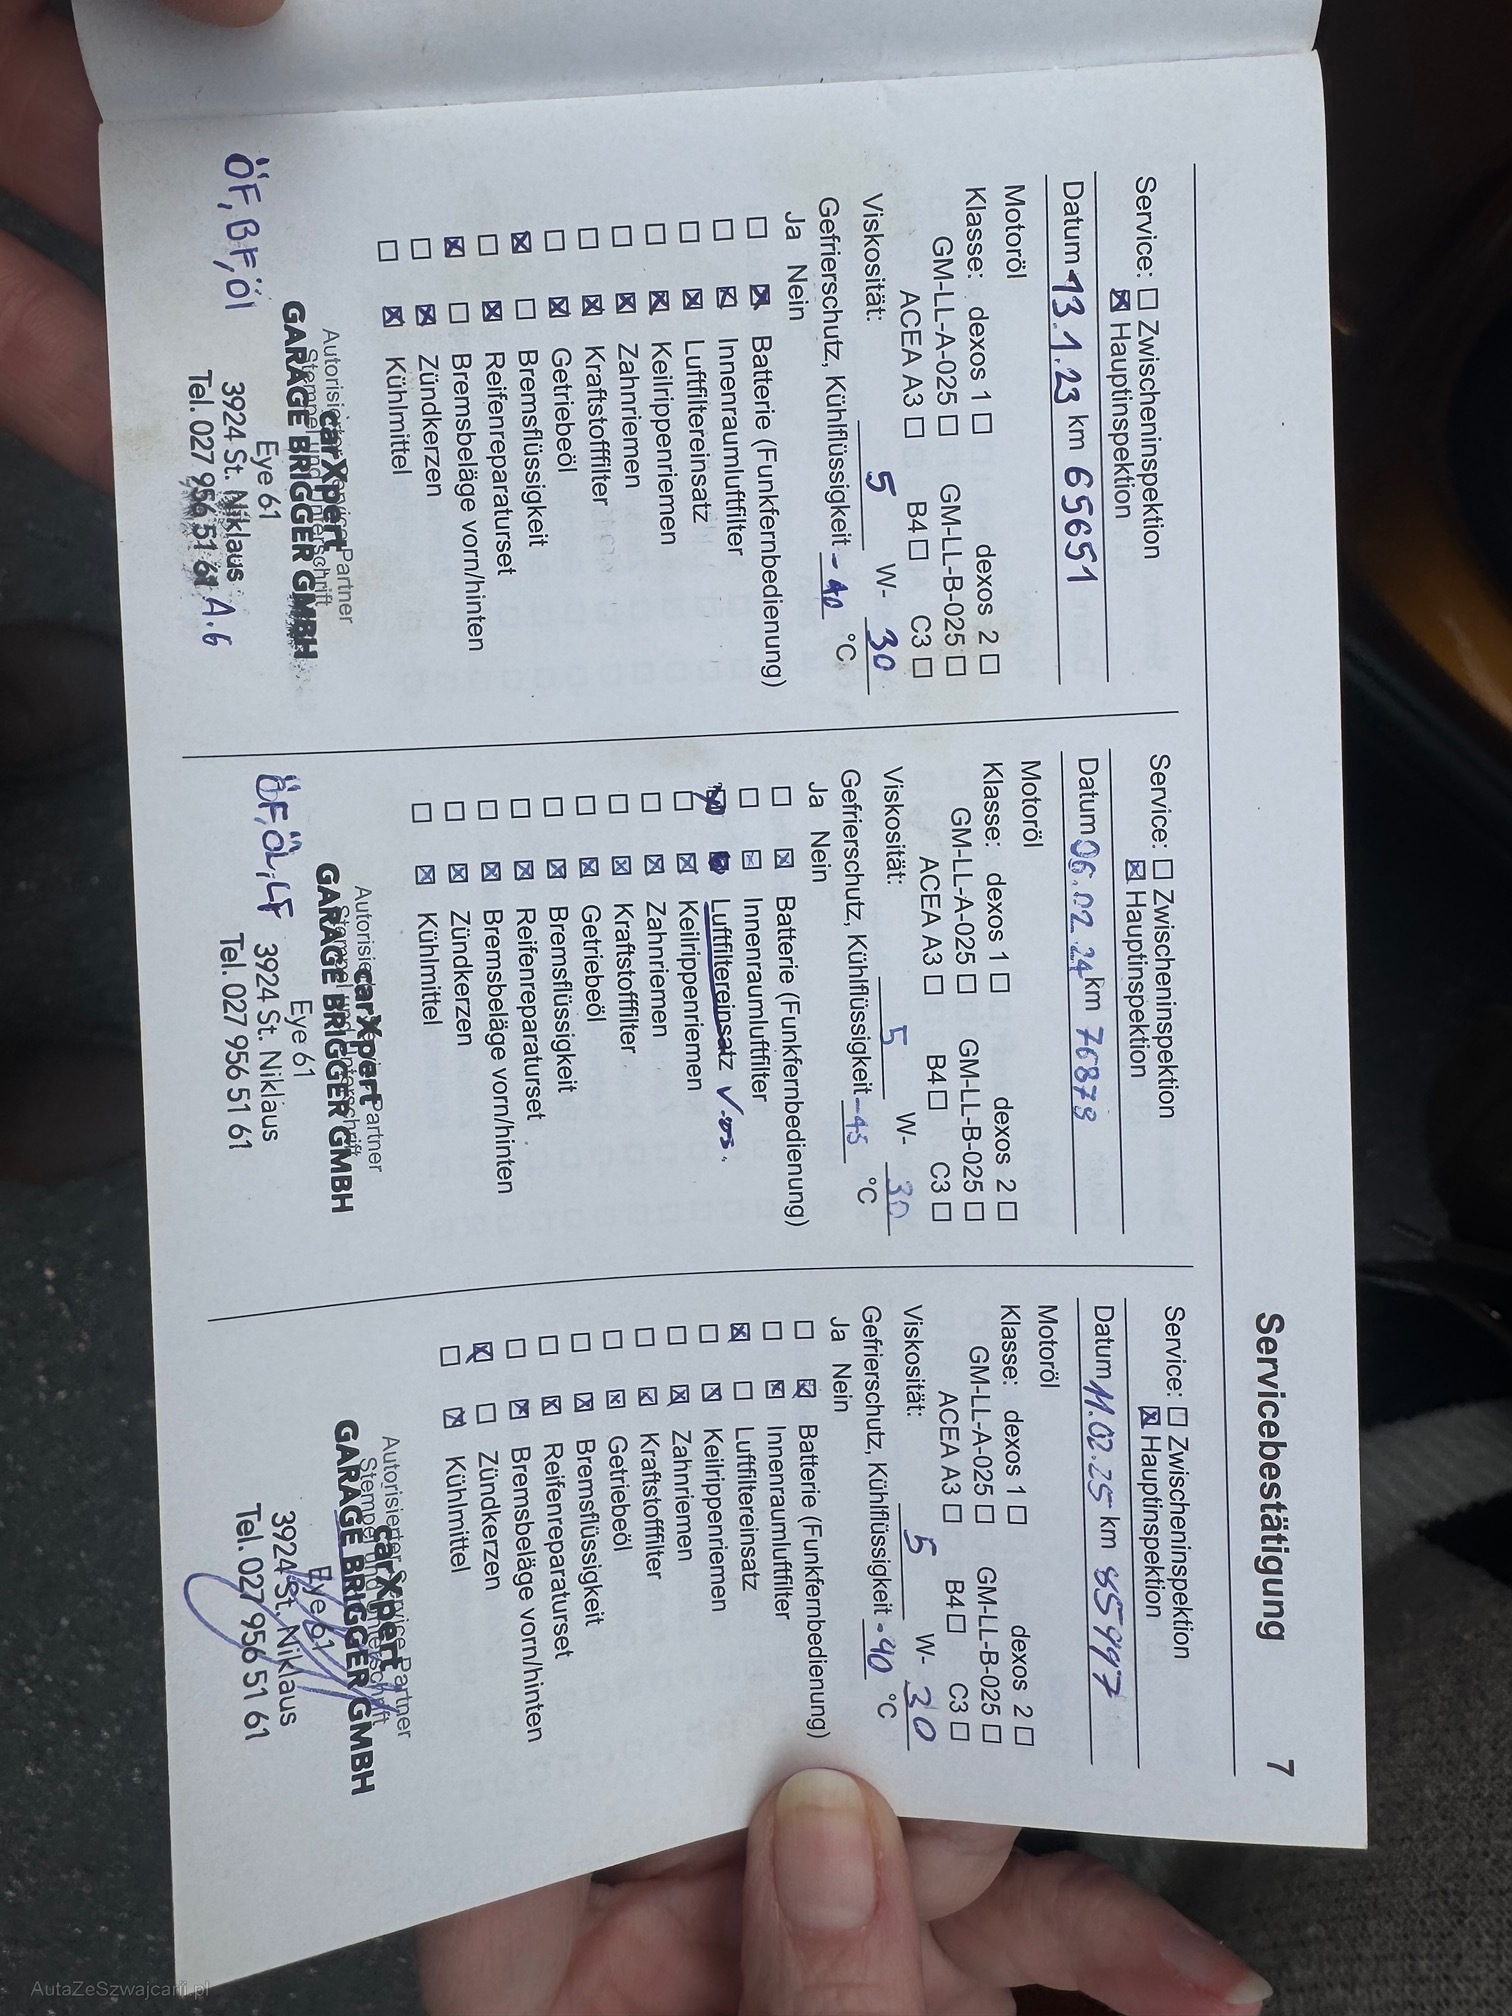 Servicebestätigung 7
Service: ☐ Zwischeninspektion
☒ Hauptinspektion
Datum 13.1.23 km 65651
Motoröl
Klasse: dexos 1 ☐ dexos 2 ☐
GM-LL-A-025 ☐ GM-LL-B-025 ☐
ACEA A3 ☐ B4 ☐ C3 ☐
Viskosität: 5 W- 30
Gefrierschutz, Kühlflüssigkeit -40 °C
Ja Nein
☐ ☒ Batterie (Funkfernbedienung)
☐ ☒ Innenraumluftfilter
☐ ☒ Luftfiltereinsatz
☐ ☒ Keilrippenriemen
☐ ☒ Zahnriemen
☐ ☒ Kraftstofffilter
☐ ☒ Getriebeöl
☒ ☐ Bremsflüssigkeit
☐ ☒ Reifenreparaturset
☒ ☐ Bremsbeläge vorn/hinten
☐ ☒ Zündkerzen
☐ ☒ Kühlmittel
Autorisierter Service Partner
Stempel und Unterschrift
carXpert
GARAGE BRIGGER GMBH
Eye 61
3924 St. Niklaus
Tel. 027 956 51 61 A.G
ÖF, BF, Öl
Service: ☐ Zwischeninspektion
☒ Hauptinspektion
Datum 06.02.24 km 76879
Motoröl
Klasse: dexos 1 ☐ dexos 2 ☐
GM-LL-A-025 ☐ GM-LL-B-025 ☐
ACEA A3 ☐ B4 ☐ C3 ☐
Viskosität: 5 W- 30
Gefrierschutz, Kühlflüssigkeit -45 °C
Ja Nein
☐ ☒ Batterie (Funkfernbedienung)
☐ ☒ Innenraumluftfilter
Luftfiltereinsatz ✓
☐ ☒ Keilrippenriemen
☐ ☒ Zahnriemen
☐ ☒ Kraftstofffilter
☐ ☒ Getriebeöl
☐ ☒ Bremsflüssigkeit
☐ ☒ Reifenreparaturset
☐ ☒ Bremsbeläge vorn/hinten
☐ ☒ Zündkerzen
☐ ☒ Kühlmittel
Autorisierter Service Partner
Stempel und Unterschrift
carXpert
GARAGE BRIGGER GMBH
Eye 61
ÖF, ÖL, LF 3924 St. Niklaus
Tel. 027 956 51 61
Service: ☐ Zwischeninspektion
☒ Hauptinspektion
Datum 11.02.25 km 85997
Motoröl
Klasse: dexos 1 ☐ dexos 2 ☐
GM-LL-A-025 ☐ GM-LL-B-025 ☐
ACEA A3 ☐ B4 ☐ C3 ☐
Viskosität: 5 W- 30
Gefrierschutz, Kühlflüssigkeit -40 °C
Ja Nein
☐ ☒ Batterie (Funkfernbedienung)
☐ ☒ Innenraumluftfilter
☒ ☐ Luftfiltereinsatz
☐ ☒ Keilrippenriemen
☐ ☒ Zahnriemen
☐ ☒ Kraftstofffilter
☐ ☒ Getriebeöl
☐ ☒ Bremsflüssigkeit
☐ ☒ Reifenreparaturset
☐ ☒ Bremsbeläge vorn/hinten
☒ ☐ Zündkerzen
☐ ☒ Kühlmittel
Autorisierter Service Partner
Stempel und Unterschrift
carXpert
GARAGE BRIGGER GMBH
Eye 61
3924 St. Niklaus
Tel. 027 956 51 61
AutaZeSzwajcarii.pl